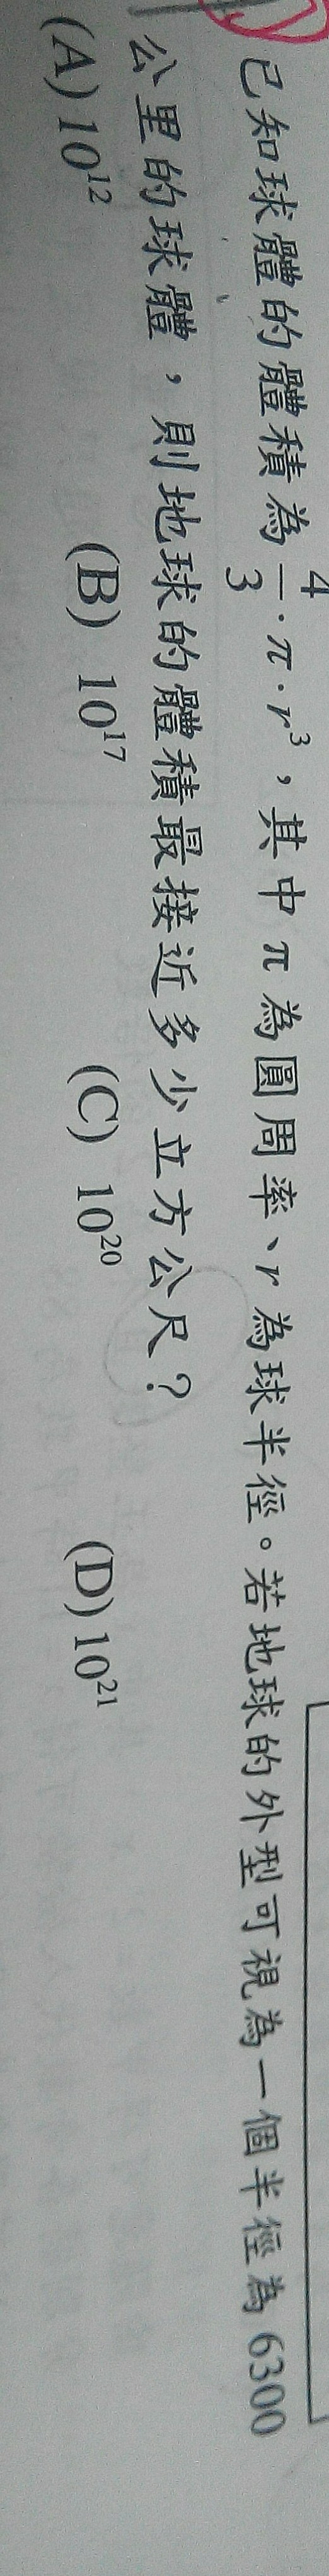 已知球體的體積為 4/3 · π · r³，其中 π 為圓周率、r 為球半徑。若地球的外型可視為一個半徑為 6300
公里的球體，則地球的體積最接近多少立方公尺？
(A) 10¹² (B) 10¹⁷ (C) 10²⁰ (D) 10²¹